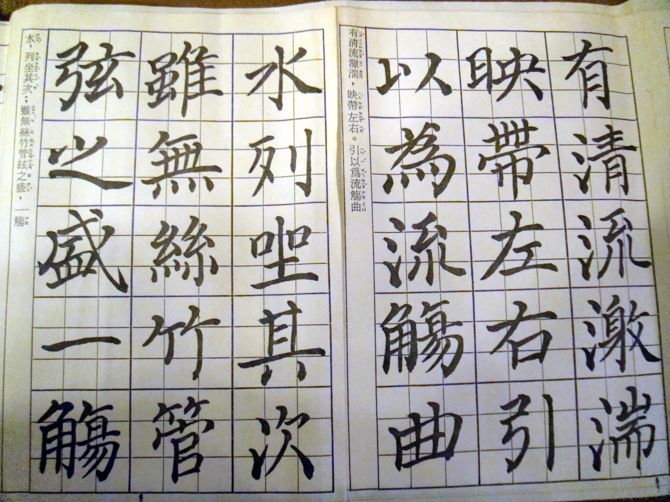 有清流激湍
映帶左右引
以為流觴曲
有清流激湍，映帶左右。引以爲流觴曲
水列坐其次
雖無絲竹管
弦之盛一觴
水，列坐其次；雖無絲竹管絃之盛，一觴